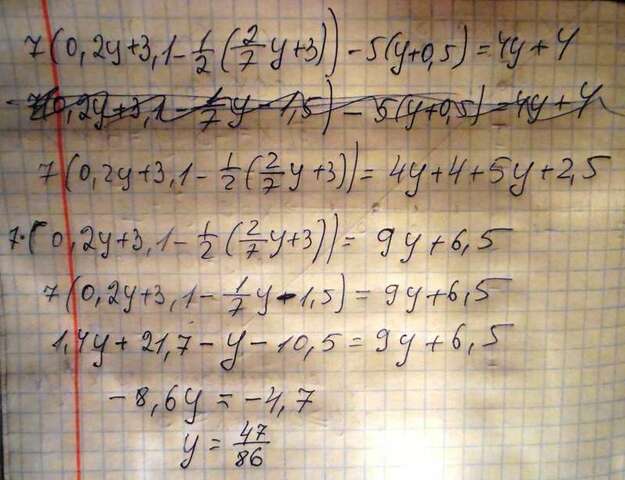 7(0,2y+3,1-1/2(2/7y+3))-5(y+0,5)=4y+4
7(0,2y+3,1-1/7y-1,5)-5(y+0,5)=4y+4
7(0,2y+3,1-1/2(2/7y+3))=4y+4+5y+2,5
7·(0,2y+3,1-1/2(2/7y+3))=9y+6,5
7(0,2y+3,1-1/7y-1,5)=9y+6,5
1,4y+21,7-y-10,5=9y+6,5
-8,6y=-4,7
y=47/86